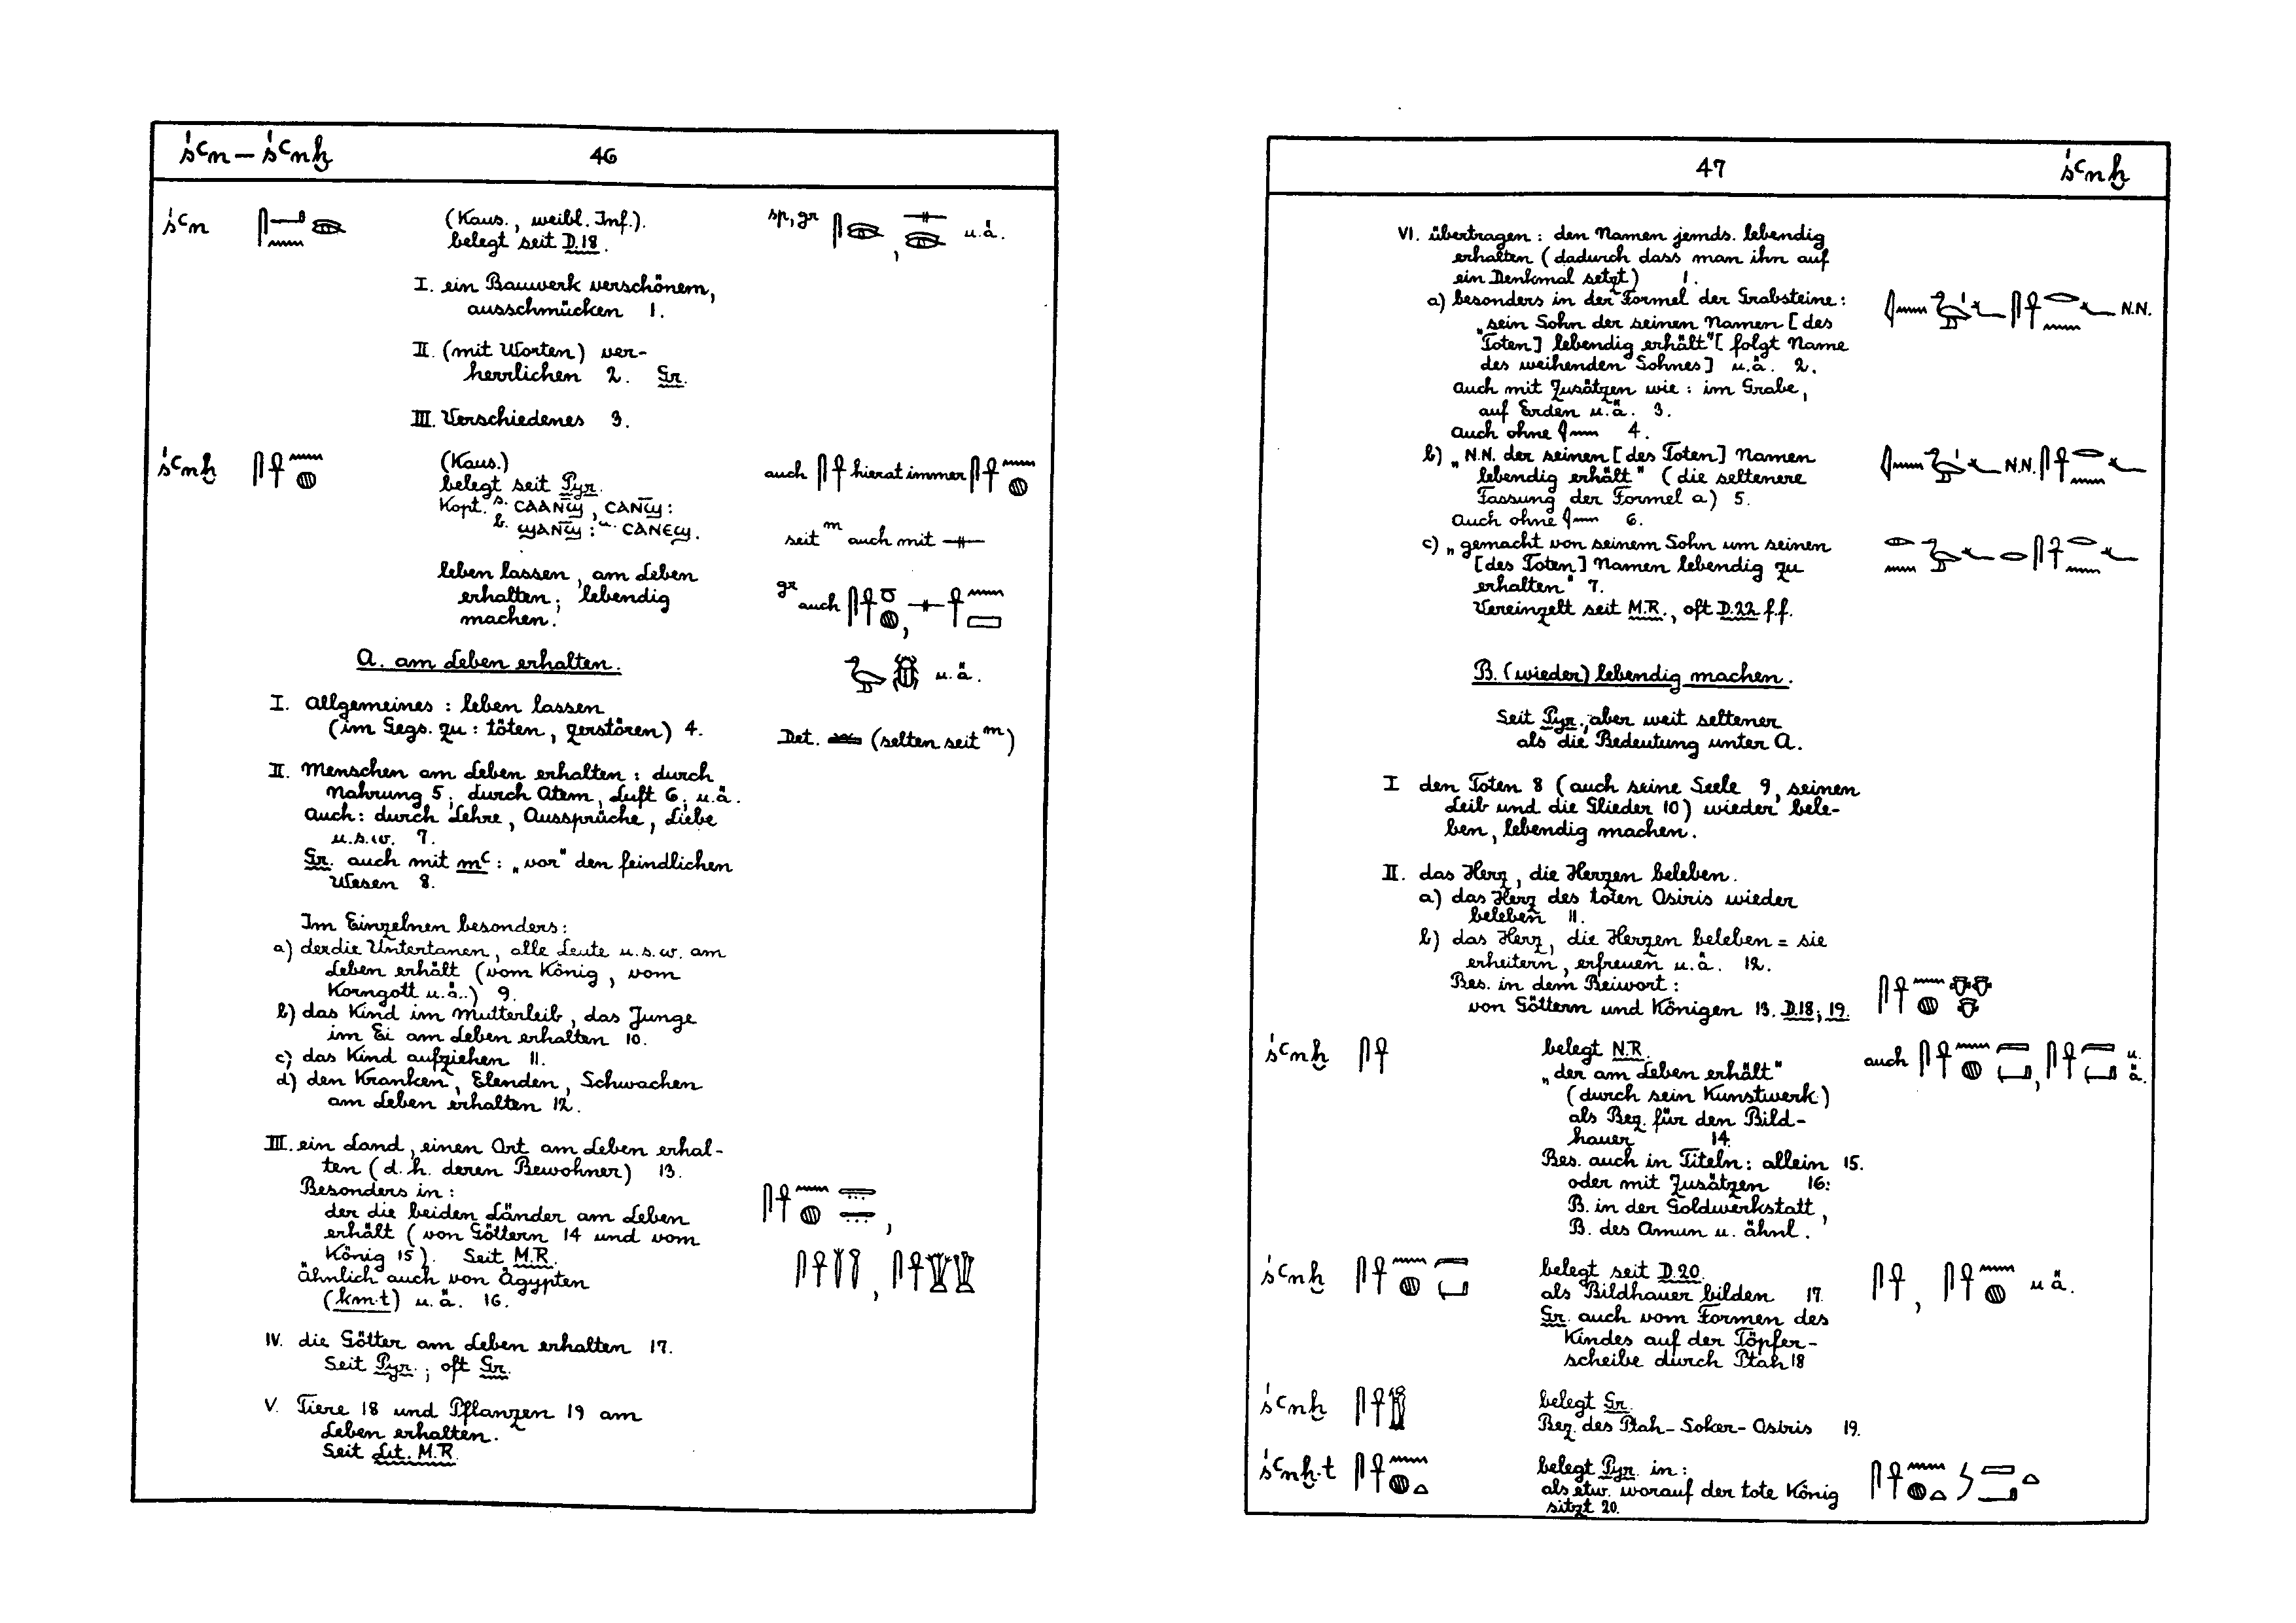 ś꜂n – ś꜂nḫ
46
ś꜂n
(Kaus., weibl. Inf.).
belegt seit D.18.
sp, gr
, u.ä.
I. ein Bauwerk verschönern,
ausschmücken 1.
II. (mit Worten) ver-
herrlichen 2. Gr.
III. Verschiedenes 3.
ś꜂nḫ
(Kaus.)
belegt seit Pyr.
Kopt. s. ⲤⲀⲀⲚϢ̅, ⲤⲀⲚ̅Ϣ̅ :
b. ϢⲀⲚ̅Ϣ̅ : ⲤⲀⲚⲈϢ.
auch hierat immer
seit m auch mit
leben lassen, am Leben
erhalten; lebendig
machen.
gr auch ,
u.ä.
Det. (selten seit m)
A. am Leben erhalten.
I. Allgemeines : leben lassen
(im Gegs. zu : töten, zerstören) 4.
II. Menschen am Leben erhalten : durch
Nahrung 5; durch Atem, Luft 6; u.ä.
Auch: durch Lehre, Aussprüche, Liebe
u.s.w. 7.
Gr. auch mit m꜂ : „vor" den feindlichen
Wesen 8.
Im Einzelnen besonders :
a) der die Untertanen, alle Leute u.s.w. am
Leben erhält (vom König, vom
Korngott u.ä.) 9.
b) das Kind im Mutterleib, das Junge
im Ei am Leben erhalten 10.
c) das Kind aufziehen 11.
d) den Kranken, Elenden, Schwachen
am Leben erhalten 12.
III. ein Land, einen Ort am Leben erhal-
ten (d.h. deren Bewohner) 13.
Besonders in :
der die beiden Länder am Leben
erhält (von Göttern 14 und vom
König 15). Seit M.R.
ähnlich auch von Ägypten
(km·t) u.ä. 16.
IV. die Götter am Leben erhalten 17.
Seit Pyr.; oft Gr.
V. Tiere 18 und Pflanzen 19 am
Leben erhalten.
Seit Lit. M.R.
47
ś꜂nḫ
VI. übertragen : den Namen jemds. lebendig
erhalten (dadurch dass man ihn auf
ein Denkmal setzt) 1.
a) besonders in der Formel der Grabsteine :
N.N.
„sein Sohn der seinen Namen [des
Toten] lebendig erhält" [folgt Name
des weihenden Sohnes] u.ä. 2.
Auch mit Zusätzen wie : im Grabe,
auf Erden u.ä. 3.
Auch ohne 4.
b) „N.N. der seinen [des Toten] Namen
N.N.
lebendig erhält" (die seltenere
Fassung der Formel a) 5.
Auch ohne 6.
c) „gemacht von seinem Sohn um seinen
[des Toten] Namen lebendig zu
erhalten" 7.
Vereinzelt seit M.R., oft D.22 f.f.
B. (wieder) lebendig machen.
Seit Pyr., aber weit seltener
als die Bedeutung unter A.
I den Toten 8 (auch seine Seele 9, seinen
Leib und die Glieder 10) wieder bele-
ben, lebendig machen.
II. das Herz, die Herzen beleben.
a) das Herz des toten Osiris wieder
beleben 11.
b) das Herz, die Herzen beleben = sie
erheitern, erfreuen u.ä. 12.
Bes. in dem Beiwort :
von Göttern und Königen 13. D.18; 19.
ś꜂nḫ
belegt N.R.
auch , u.ä.
„der am Leben erhält"
(durch sein Kunstwerk)
als Bez. für den Bild-
hauer 14.
Bes. auch in Titeln : allein 15.
oder mit Zusätzen 16:
B. in der Goldwerkstatt,
B. des Amun u. ähnl.
ś꜂nḫ
belegt seit D.20.
als Bildhauer bilden 17.
, u ä.
Gr. auch vom Formen des
Kindes auf der Töpfer-
scheibe durch Ptah 18
ś꜂nḫ
belegt Gr.
Bez. des Ptah-Soker-Osiris 19.
ś꜂nḫ·t
belegt Pyr. in :
als etw. worauf der tote König
sitzt 20.